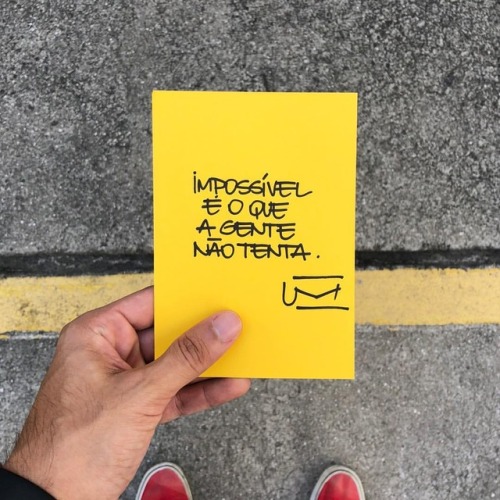 IMPOSSÍVEL
É O QUE
A GENTE
NÃO TENTA.